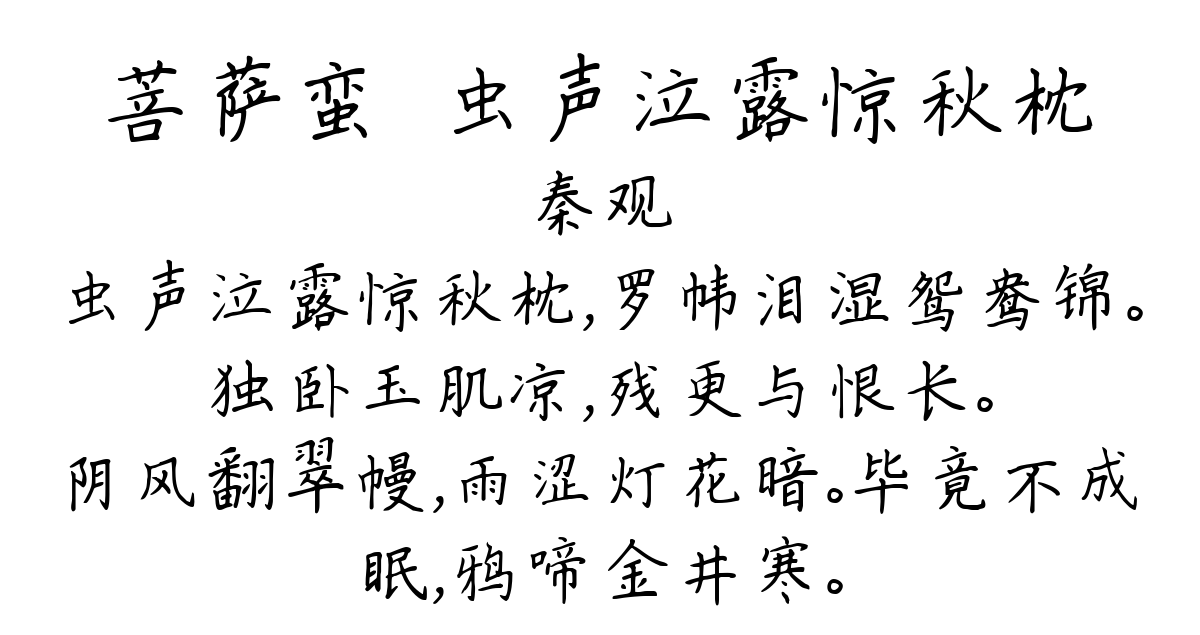 菩萨蛮 虫声泣露惊秋枕
秦观
虫声泣露惊秋枕,罗帏泪湿鸳鸯锦。
独卧玉肌凉,残更与恨长。
阴风翻翠幔,雨涩灯花暗。毕竟不成
眠,鸦啼金井寒。